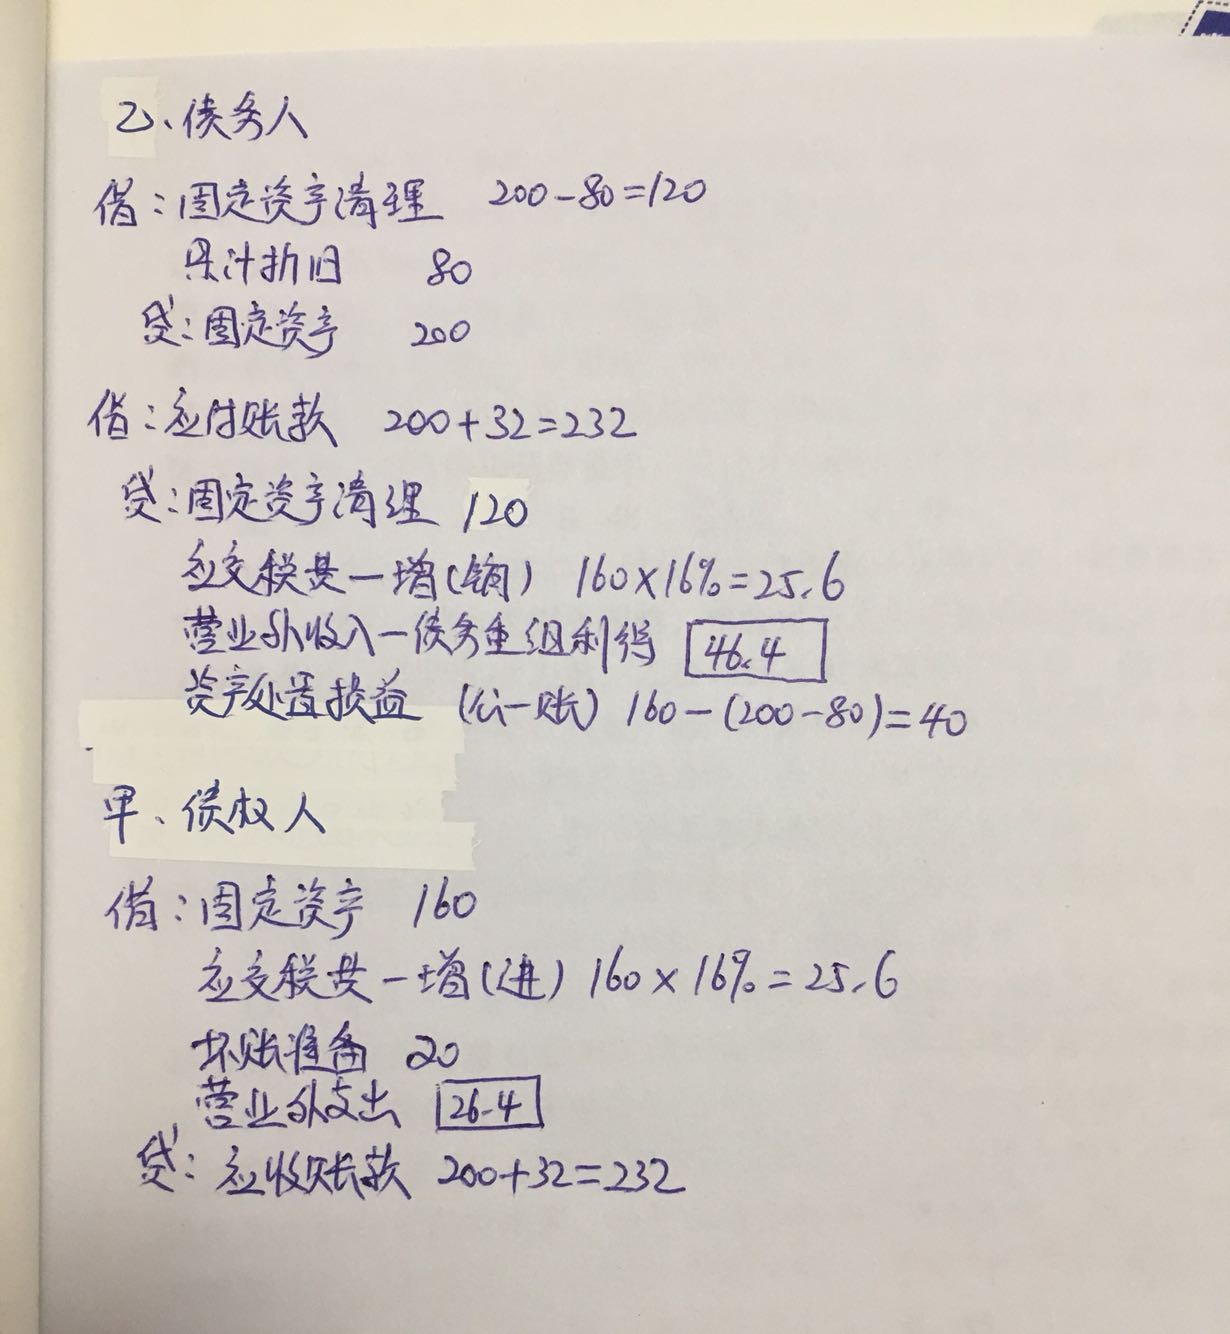 乙、债务人
借：固定资产清理 200-80=120
累计折旧 80
贷：固定资产 200
借：应付账款 200+32=232
贷：固定资产清理 120
应交税费一增(销) 160×16%=25.6
营业外收入一债务重组利得 46.4
资产处置损益 (公一账) 160-(200-80)=40
甲、债权人
借：固定资产 160
应交税费一增(进) 160×16%=25.6
坏账准备 20
营业外支出 26.4
贷：应收账款 200+32=232